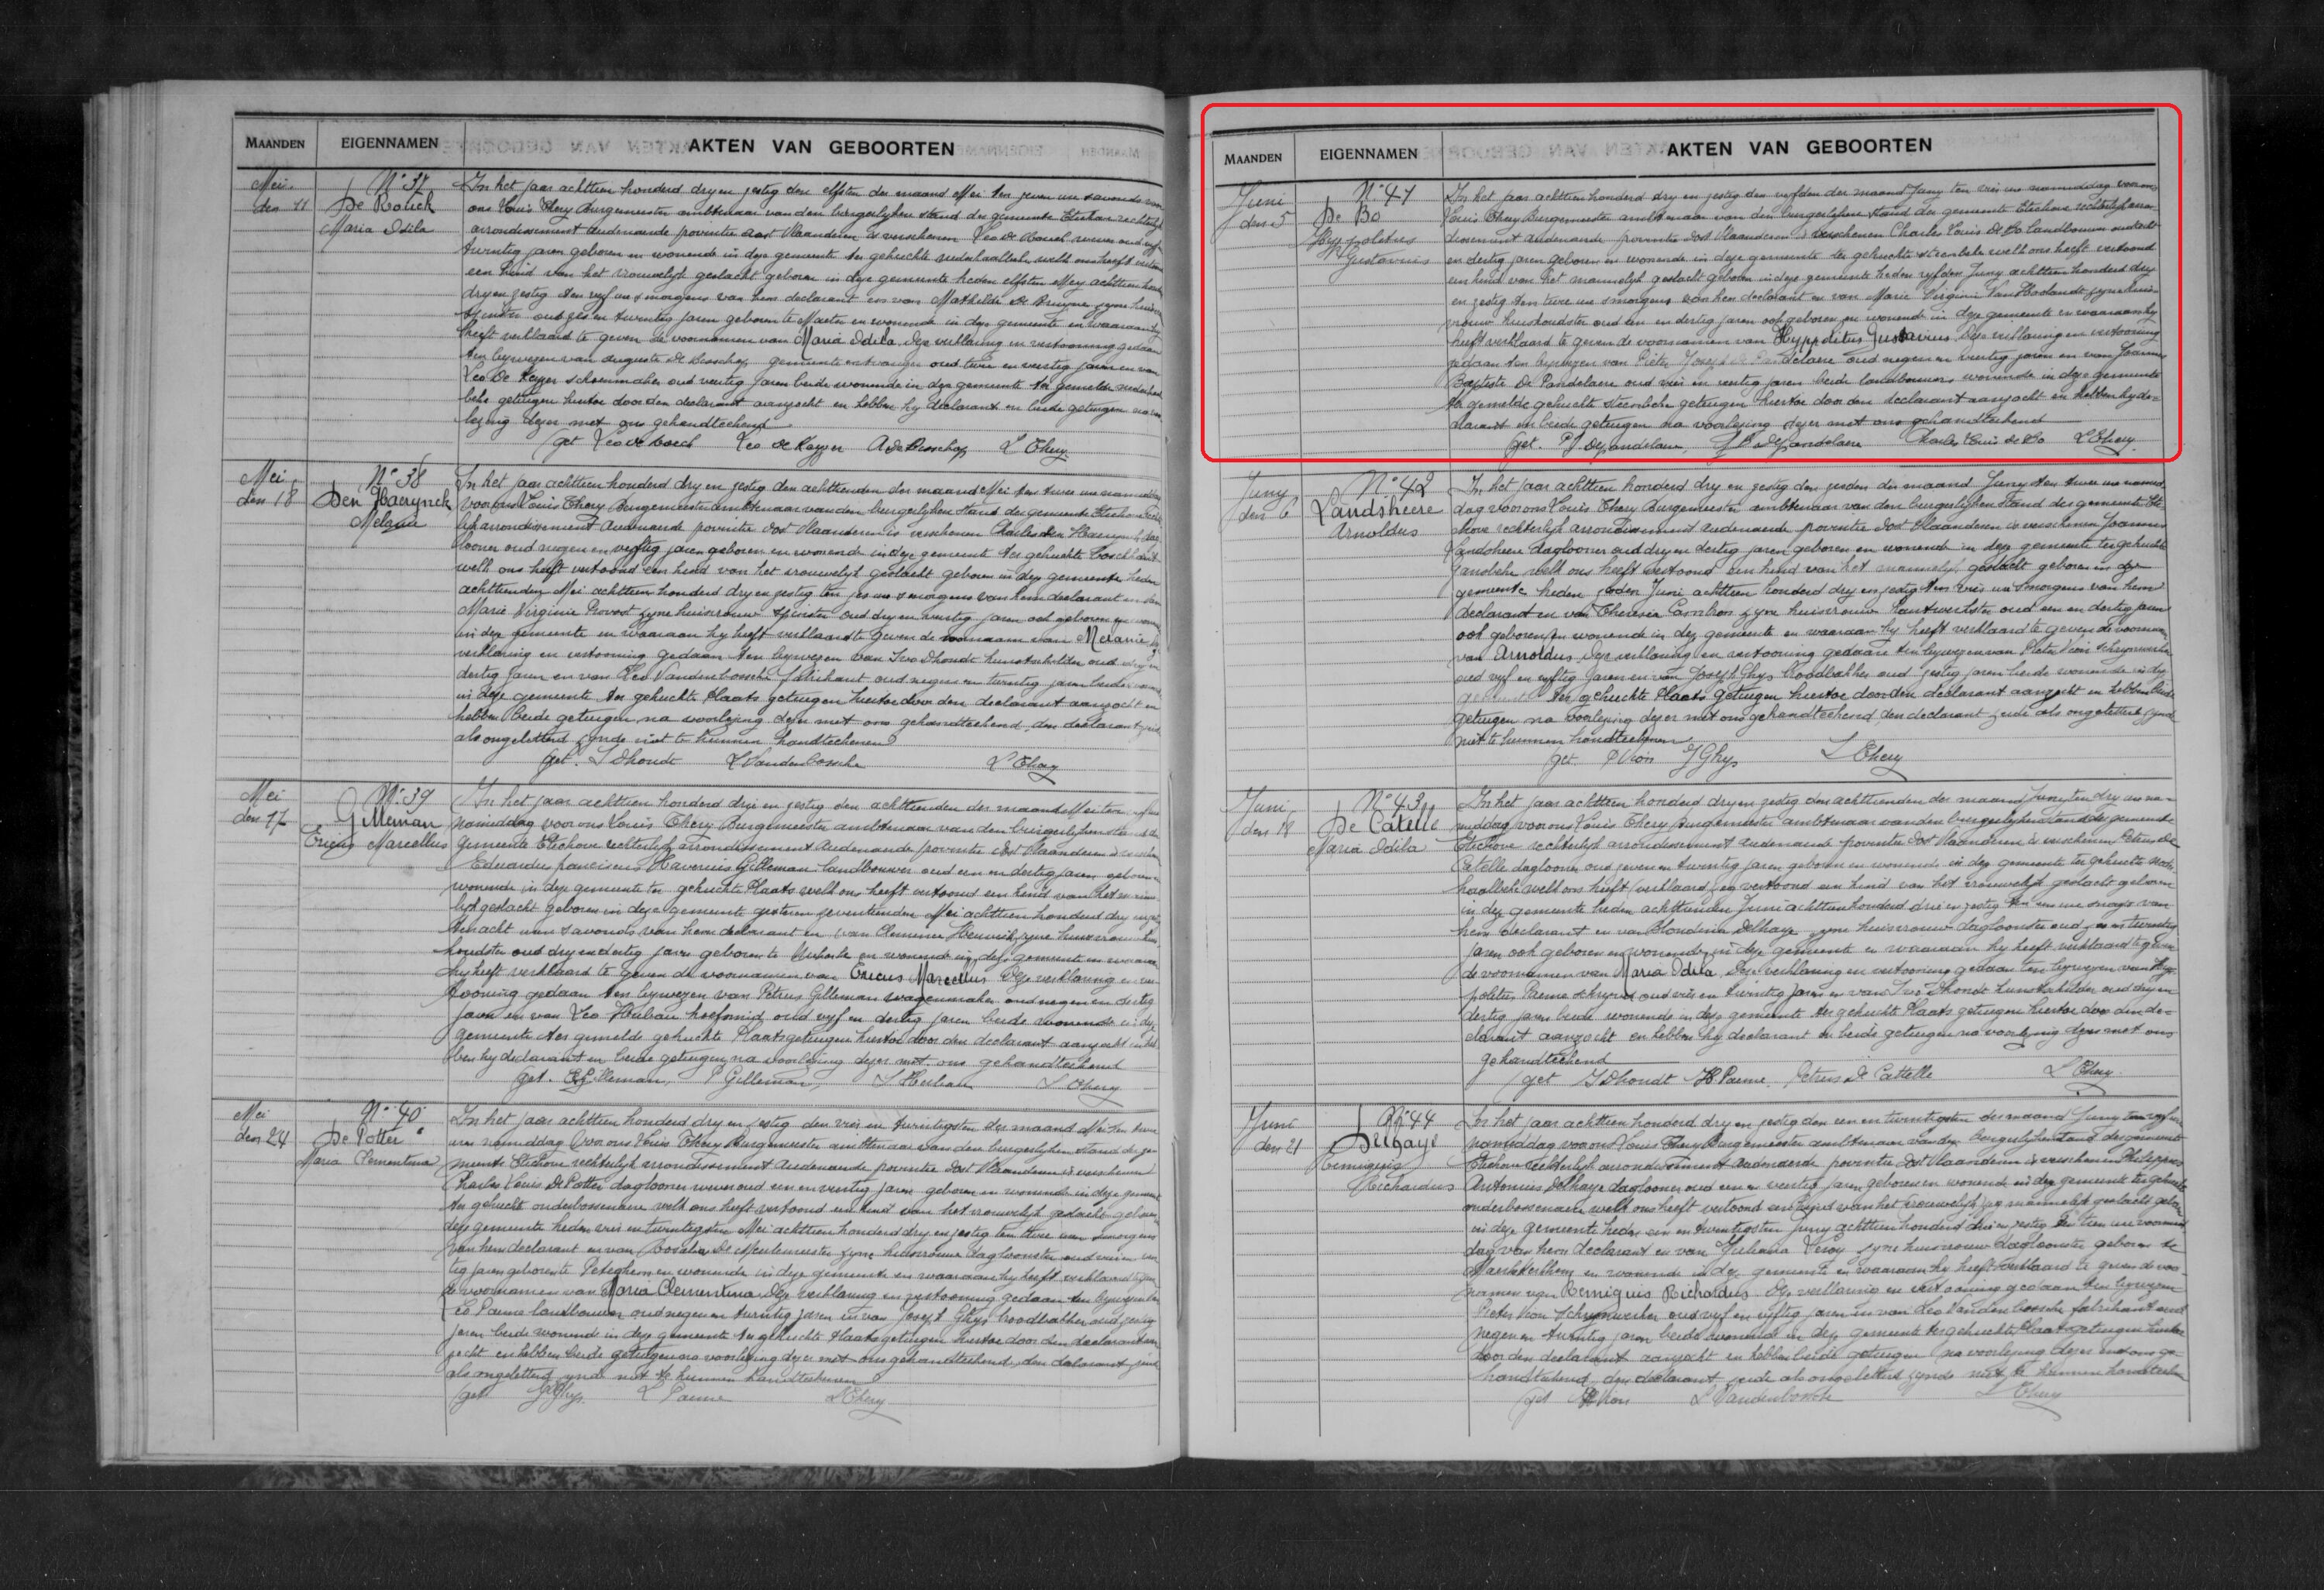 MAANDEN EIGENNAMEN AKTEN VAN GEBOORTEN
Mei den 11
N° 37
De Rouck
Maria Odila
In het jaar achttien honderd dry en zestig den elfsten der maand Mei ten zeven ure savonds voor
ons Louis Thery Burgemeester ambtenaar van den burgerlyken stand der gemeente Etichove rechterlyk
arrondissement Audenaarde provintie oost Vlaanderen is verschenen Leo de Rouck wever oud
twintig jaren geboren en wonende in deze gemeente ter gehuchte nederhaalbeke welk ons heeft vertoond
een kind van het vrouwelyk geslacht geboren in deze gemeente heden elfsten Mey achttien honderd
dry en zestig ten vyf ure smorgens van hem declarant en van Mathilde De Bruyne zyne huisvrouw
oud zes en twintig jaren geboren te Mater en wonende in deze gemeente en waaraan hy
heeft verklaard te geven de voornamen van Maria Odila. Deze verklaring en vertooning gedaan
ten bywezen van Auguste De Bosscher gemeente ontvanger oud twee en veertig jaren en van
Leo De Keyzer schoenmaker oud veertig jaren beide wonende in deze gemeente ter gemelde nederhaal
beke getuigen hiertoe door den declarant aanzocht en hebben hy declarant en beide getuigen na voor
lezing dezer met ons gehandteekend
get Leo de Roeck Leo de Keyzer A De Bosscher L Thery
Mei den 18
N° 38
Den Haerynck
Melanie
In het jaar achttien honderd dry en zestig den achttienden der maand Mei ten twee ure namiddag
voor ons Louis Thery Burgemeester ambtenaar van den burgerlyken stand der gemeente Etichove rechter
lyk arrondissement Audenaarde provintie oost Vlaanderen is verschenen Charles den Haerynck dag
looner oud negen en vyftig jaren geboren en wonende in deze gemeente ter gehuchte
welk ons heeft vertoond een kind van het vrouwelyk geslacht geboren in deze gemeente heden
achttienden Mei achttien honderd dry en zestig ten zes ure smorgens van hem declarant en van
Marie Virginie Provost zyne huisvrouw spinster oud dry en veertig jaren ook geboren en wonende
in deze gemeente en waaraan hy heeft verklaard te geven de voornaam van Melanie
verklaring en vertooning gedaan ten bywezen van Ivo Dhondt kunstschilder oud dry en
dertig jaren en van Leo Vandenbossche fabrikant oud negen en twintig jaren beide wonende
in deze gemeente ter gehuchte Plaats getuigen hiertoe door den declarant aanzocht en
hebben beide getuigen na voorlezing dezer met ons gehandteekend, den declarant zeide
als ongeletterd zynde niet te kunnen handteekenen
get. I Dhondt L Vandenbossche L Thery
Mei den 17
N° 39
Gilleman
Ericus Marcellus
In het jaar achttien honderd drie en zestig den achttienden der maand Mei ten
namiddag voor ons Louis Thery Burgemeester ambtenaar van den burgerlyken stand der
gemeente Etichove rechterlyk arrondissement Audenaarde provintie oost Vlaanderen is verschenen
Eduardus franciscus Xaverius Gilleman landbouwer oud een en dertig jaren geboren
wonende in deze gemeente ter gehuchte Plaats welk ons heeft vertoond een kind van het manne
lyk geslacht geboren in deze gemeente gisteren zeventienden Mei achttien honderd dry en zestig
ten acht ure savonds van hem declarant en van Clemence zyne huisvrouw huis
houdster oud dry en dertig jaren geboren te en wonende in deze gemeente en waaraan
hy heeft verklaard te geven de voornamen van Ericus Marcellus Deze verklaring en ver
tooning gedaan ten bywezen van Petrus Gilleman wagenmaker oud negen en dertig
jaren en van Leo Hubau hoefsmid oud vyf en dertig jaren beide wonende in deze
gemeente ter gemelde gehuchte Plaats getuigen hiertoe door den declarant aanzocht en heb
ben hy declarant en beide getuigen na voorlezing dezer met ons gehandteekend
get. E Gilleman, P Gilleman, L Hubau L Thery
Mei den 24
N° 40
De Potter
Maria Clementina
In het jaar achttien honderd dry en zestig den vier en twintigsten der maand Mei ten twee
uren namiddag voor ons Louis Thery Burgemeester ambtenaar van den burgerlyken stand der ge
meente Etichove rechterlyk arrondissement Audenaarde provintie oost Vlaanderen is verschenen
Charles Louis De Potter daglooner wever oud een en veertig jaren geboren en wonende in deze gemeente
ter gehucht onderbossenaere welk ons heeft vertoond een kind van het vrouwelyk geslacht geboren
deze gemeente heden vier en twintigsten Mei achttien honderd dry en zestig ten twee ure smorgens
van hem declarant en van Rosalie De Meulemeester zyne huisvrouw dagloonster oud
tig jaren geboren te Peteghem en wonende in deze gemeente en waaraan hy heeft verklaard te geven
de voornamen van Maria Clementina. Deze verklaring en vertooning gedaan ten bywezen van
Leo Paeme landbouwer oud negen en twintig jaren en van Joseph Ghys broodbakker oud zestig
jaren beide wonend in deze gemeente ter gehuchte Plaats getuigen hiertoe door den declarant aan
zocht en hebben beide getuigen na voorlezing dezer met ons gehandteekend, den declarant zeide
als ongeletterd zynde niet te kunnen handteekenen
get J Ghys L Paeme L Thery
MAANDEN EIGENNAMEN AKTEN VAN GEBOORTEN
Juni den 5
N° 41
De Bo
Hyppolitus
Gustavus
In het jaar achttien honderd dry en zestig den vyfden der maand Juny ten vier ure namiddag voor ons
Louis Thery Burgemeester ambtenaar van den burgerlyken stand der gemeente Etichove rechterlyk arron
dissement audenaarde provintie oost Vlaanderen is verschenen Charles Louis De Bo landbouwer oud acht
en dertig jaren geboren en wonende in deze gemeente ter gehuchte steenbeke welk ons heeft vertoond
een kind van het mannelyk geslacht geboren in deze gemeente heden vyfden Juny achttien honderd dry
en zestig ten twee ure smorgens van hem declarant en van Marie Virginie Van Haelandt zyne huis
vrouw huishoudster oud een en dertig jaren ook geboren en wonende in deze gemeente en waaraan hy
heeft verklaard te geven de voornamen van Hyppolitus Gustavus. Deze verklaring en vertooning
gedaan ten bywezen van Pieter Joseph De Pandelaere oud negen en veertig jaren en van Joannes
Baptiste De Pandelaere oud vier en veertig jaren beide landbouwers wonende in deze gemeente
ter gemelde gehuchte steenbeke getuigen hiertoe door den declarant aanzocht en hebben hy de-
clarant en beide getuigen na voorlezing dezer met ons gehandteekend
get. PJ Depandelaere, JB Depandelaere Charles Louis de Bo L Thery
Juny den 6
N° 42
Landsheere
Arnoldus
In het jaar achttien honderd dry en zestig den zesden der maand Juny ten twee ure namid
dag voor ons Louis Thery Burgemeester ambtenaar van den burgerlyken stand der gemeente Eti
chove rechterlyk arrondissement Audenaarde provintie oost Vlaanderen is verschenen Joannes
Landsheere daglooner oud dry en dertig jaren geboren en wonend in deze gemeente ter gehuchte
Ganzbeke welk ons heeft vertoond een kind van het mannelyk geslacht geboren in deze
gemeente heden zesden Juni achttien honderd dry en zestig ten vier ure smorgens van hem
declarant en van Theresia zyne huisvrouw kantwerkster oud een en dertig jaren
ook geboren en wonende in deze gemeente en waaraan hy heeft verklaard te geven de voornaam
van Arnoldus. Deze verklaring en vertooning gedaan ten bywezen van Pieter Vion schrynwerker
oud vyf en vyftig jaren en van Joseph Ghys broodbakker oud zestig jaren beide wonende in deze
gemeente ter gehuchte Plaats getuigen hiertoe door den declarant aanzocht en hebben beide
getuigen na voorlezing dezer met ons gehandteekend den declarant zeide als ongeletterd zynde
niet te kunnen handteekenen
get. P Vion J Ghys L Thery
Juni den 18
N° 43
De Catelle
Maria Odila
In het jaar achttien honderd dry en zestig den achttienden der maand Juny ten dry ure na-
middag voor ons Louis Thery Burgemeester ambtenaar van den burgerlyken stand der gemeente
Etichove rechterlyk arrondissement Audenaarde provintie oost Vlaanderen is verschenen Petrus De
Catelle daglooner oud zeven en twintig jaren geboren en wonende in deze gemeente ter gehuchte neder
haalbeke welk ons heeft (verklaard) zeg vertoond een kind van het vrouwelyk geslacht geboren
in deze gemeente heden achttienden Juni achttien honderd drie en zestig ten een ure smorgens van
hem declarant en van Blondina Delhaye zyne huisvrouw dagloonster oud zes en twintig
jaren ook geboren en wonende in deze gemeente en waaraan hy heeft verklaard te geven
de voornamen van Maria Odila. Deze verklaring en vertooning gedaan ten bywezen van Hyp
politus Paeme schryver oud vier en twintig jaren en van Ivo Dhondt kunstschilder oud dry en
dertig jaren beide wonende in deze gemeente ter gehuchte Plaats getuigen hiertoe door den de-
clarant aanzocht en hebben hy declarant en beide getuigen na voorlezing dezer met ons
gehandteekend
get I Dhondt H. Paeme Petrus De Cattelle L Thery
Juni den 21
N° 44
Delhaye
Remigius
Richardus
In het jaar achttien honderd dry en zestig den een en twintigsten der maand Juny ten vyf ure
namiddag voor ons Louis Thery Burgemeester ambtenaar van den burgerlyken stand der gemeente
Etichove rechterlyk arrondissement Audenaarde provintie oost Vlaanderen is verschenen Philippus
Antonius Delhaye daglooner oud een en veertig jaren geboren en wonende in deze gemeente ter gehuchte
onderbossenaere welk ons heeft vertoond een kind van het (vrouwelyk) zeg mannelyk geslacht geboren
in deze gemeente heden een en twintigsten Juny achttien honderd drie en zestig ten tien ure voormid
dag van hem declarant en van Juliana Leroy zyne huisvrouw dagloonster geboren te
Maerkekerkhem en wonende in deze gemeente en waaraan hy heeft verklaard te geven de voor
namen van Remiguis Richardus. Deze verklaring en vertooning gedaan ten bywezen
Pieter Vion schrynwerker oud vyf en vyftig jaren en van Leo Vandenbossche fabrikant oud
negen en twintig jaren beide wonend in deze gemeente ter gehuchte Plaats getuigen hiertoe
door den declarant aanzocht en hebben beide getuigen na voorlezing dezer met ons ge-
handteekend, den declarant zeide als ongeletterd zynde niet te kunnen handteeken
get P Vion L Vandenbossche L Thery